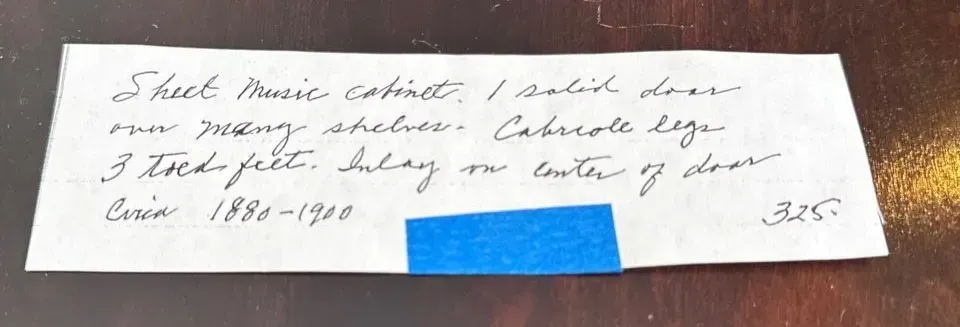 Sheet Music cabinet. 1 solid door
over many shelves. Cabriole legs
3 toed feet. Inlay on center of door
Circa 1880-1900
325.